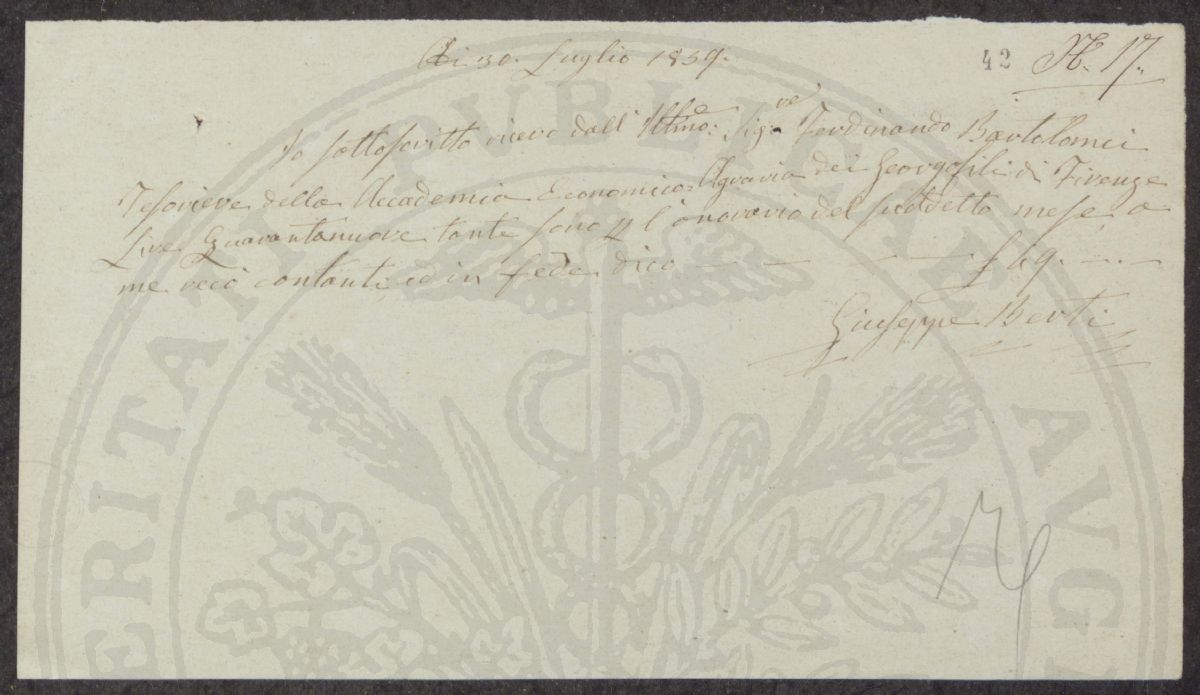 Adi 30. Luglio 1839.
42 N. 17.
Io sottoscritto ricevo dall' Illmo: Sig:re Ferdinando Bartolomei
Tesoriere della Accademia Economico=Agraria dei Georgofili di Firenze
Lire Quarantanuove tante sono p l'onorario del suddetto mese, a
me reco contanti, ed in fede dico — — — — £ 49. —.—
Giuseppe Berti
PVBLICAE
PROSPERITATI AVGENDAE